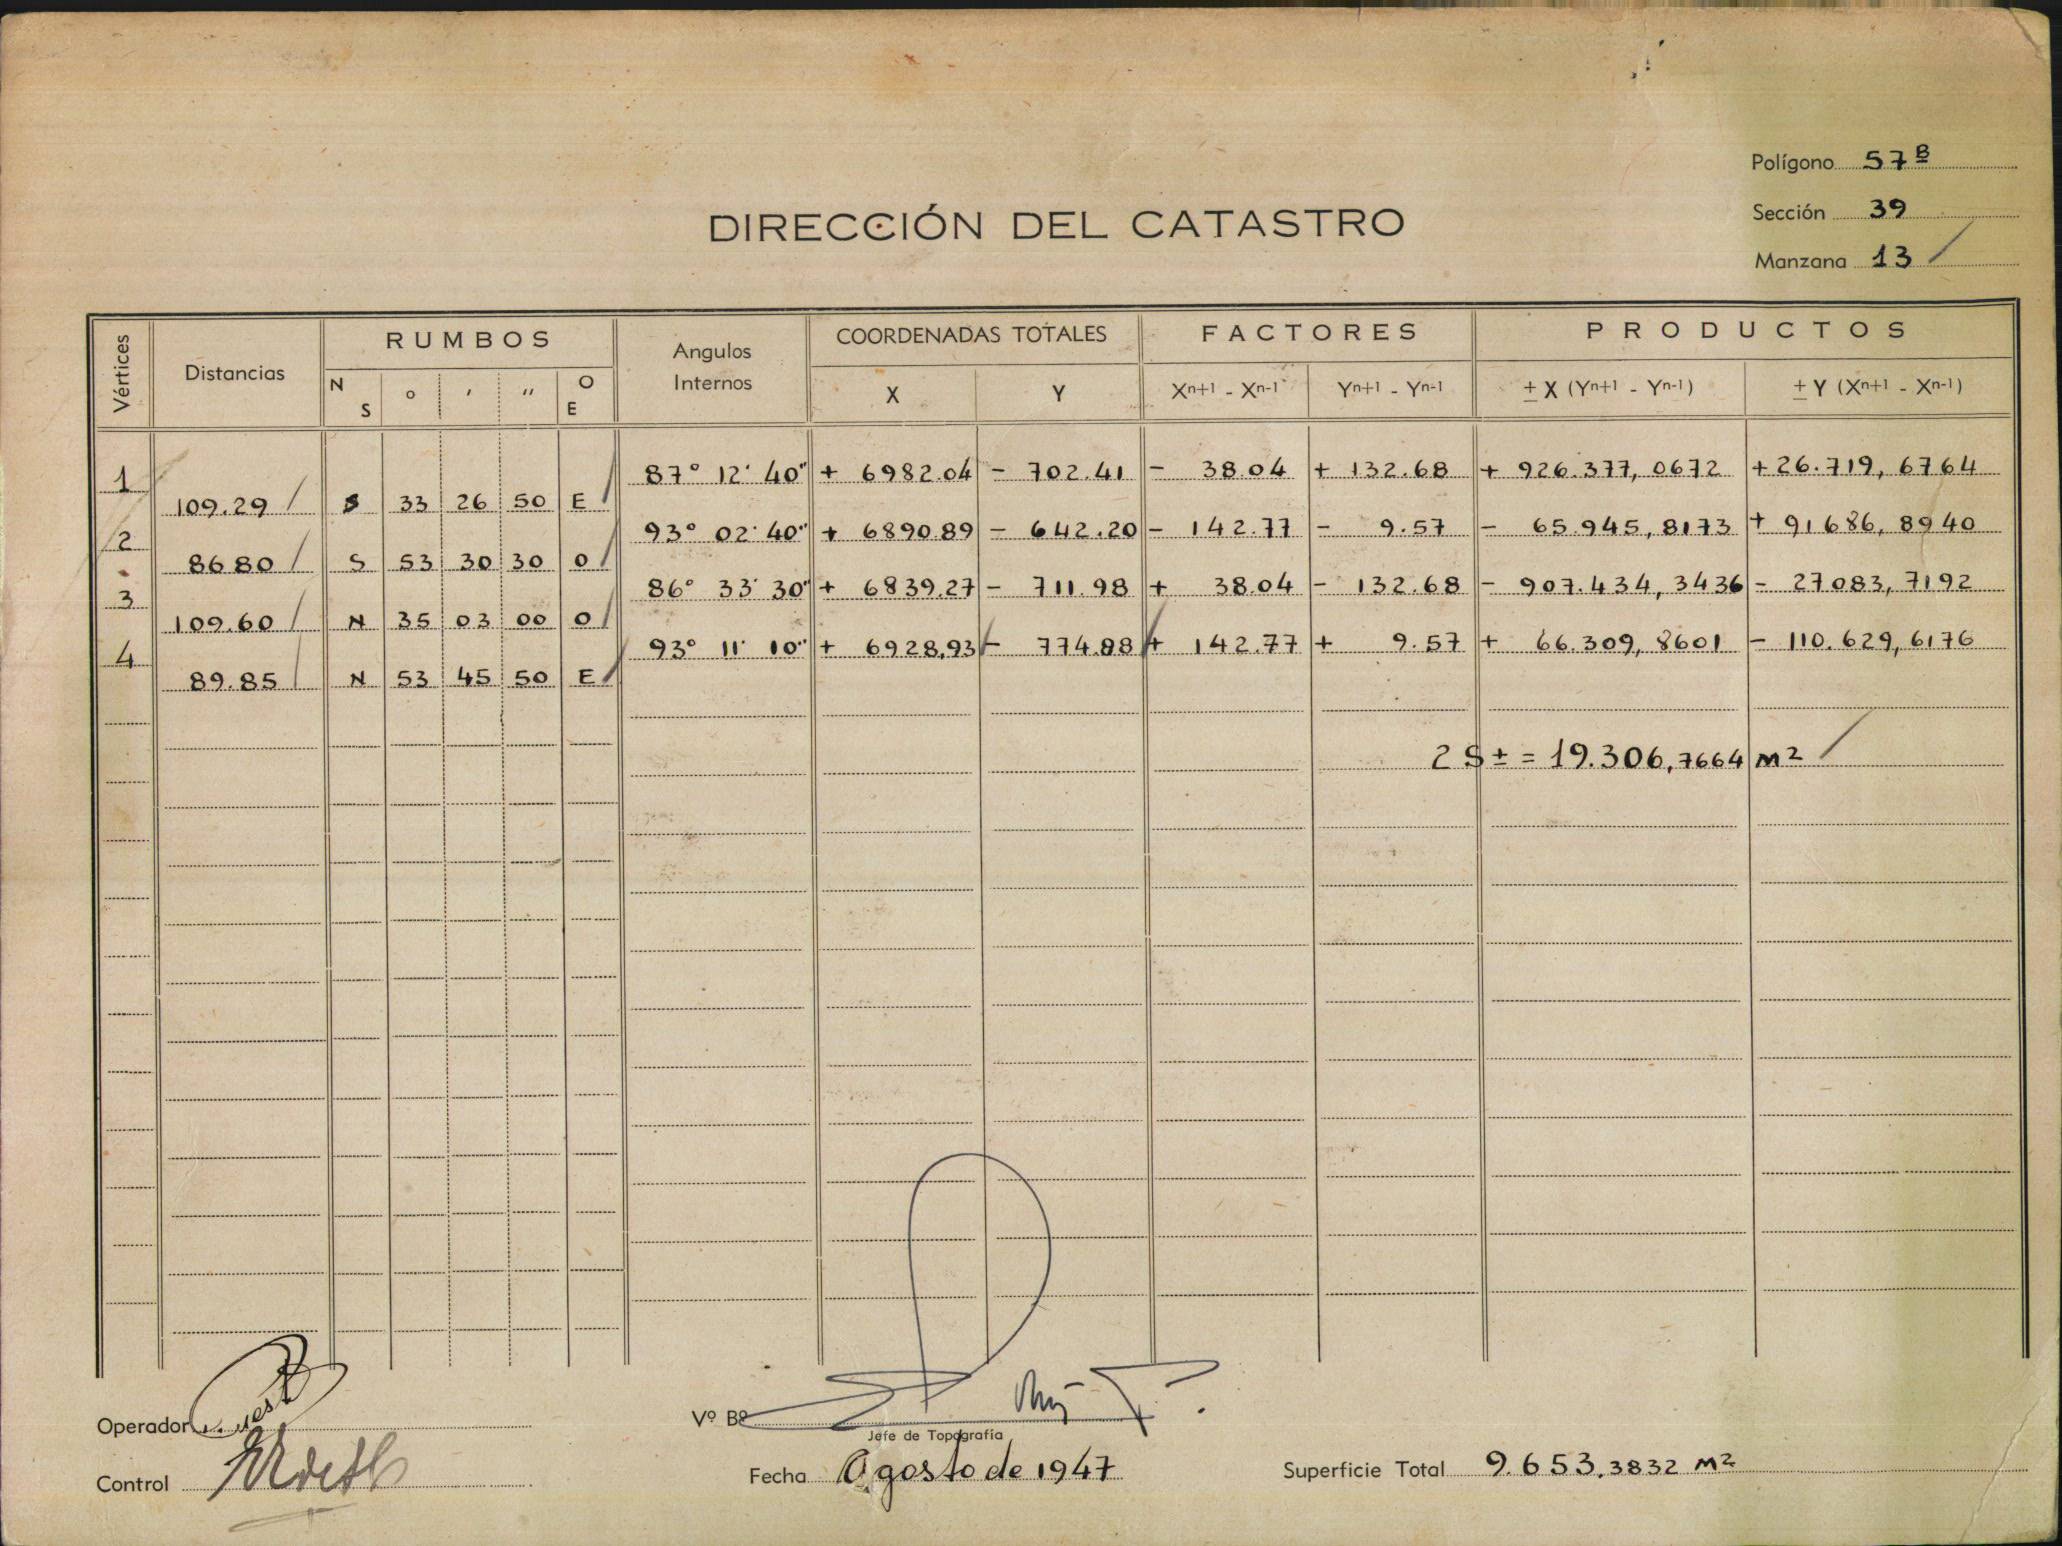 Polígono 57 B
Sección 39
Manzana 13
DIRECCIÓN DEL CATASTRO
Vértices Distancias RUMBOS Angulos Internos COORDENADAS TOTALES FACTORES PRODUCTOS
N S ° ′ ″ O E X Y Xn+1 - Xn-1 Yn+1 - Yn-1 ± X (Yn+1 - Yn-1) ± Y (Xn+1 - Xn-1)
1 87° 12' 40" + 6982.04 - 702.41 - 38.04 + 132.68 + 926.377,0672 + 26.719,6764
109.29 S 33 26 50 E
2 93° 02' 40" + 6890.89 - 642.20 - 142.77 - 9.57 - 65.945,8173 + 91686,8940
86.80 S 53 30 30 O
3 86° 33' 30" + 6839.27 - 711.98 + 38.04 - 132.68 - 907.434,3436 - 27083,7192
109.60 N 35 03 00 O
4 93° 11' 10" + 6928,93 - 774.88 + 142.77 + 9.57 + 66.309,8601 - 110.629,6176
89.85 N 53 45 50 E
2 S ± = 19.306,7664 M2
Operador
Vº Bº
Jefe de Topografía
Control
Fecha Agosto de 1947
Superficie Total 9.653,3832 M2